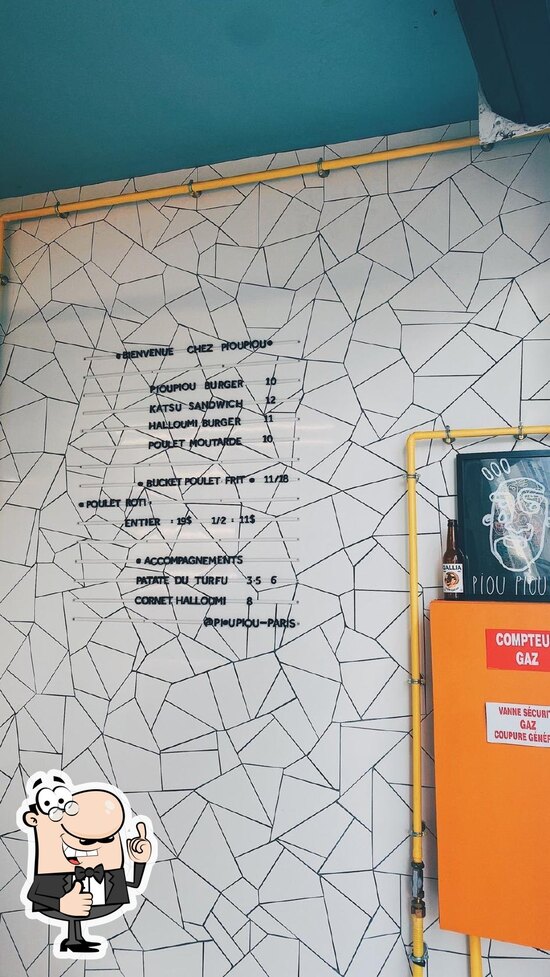 •BIENVENUE CHEZ PIOUPIOU•
PIOUPIOU BURGER 10
KATSU SANDWICH 12
HALLOUMI BURGER 11
POULET MOUTARDE 10
• BUCKET POULET FRIT • 11/18
• POULET ROTI •
ENTIER : 19$ 1/2 : 11$
• ACCOMPAGNEMENTS
PATATE DU TURFU 3.5 6
CORNET HALLOUMI 8
@PIOUPIOU-PARIS
GALLIA
PIOU PIOU
COMPTEU
GAZ
VANNE SÉCURIT
GAZ
COUPURE GÉNÉR